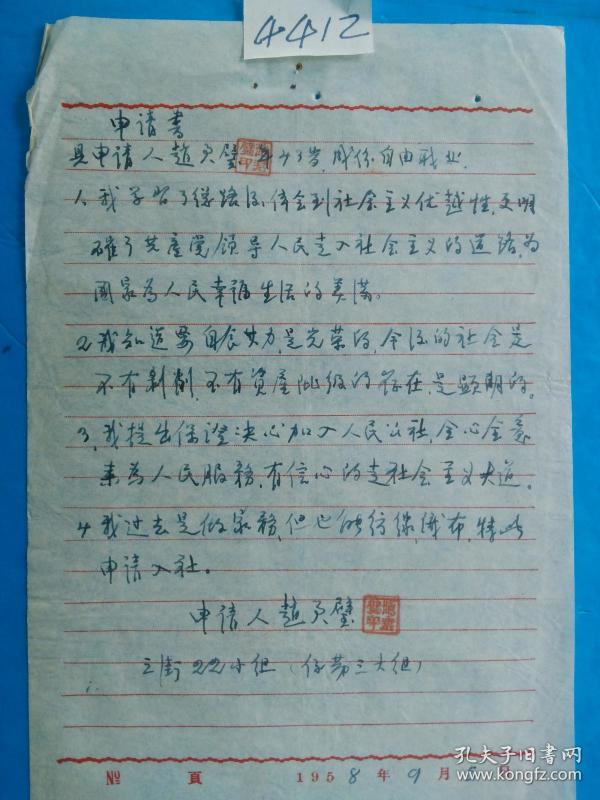 4412
申请书
具申请人趙 璧 年43岁, 成份自由职业
1. 我学習了总路线, 体会到社会主义优越性, 更明
确了共產党领导人民走入社会主义的道路, 为
國家為人民幸福生活的美满。
2. 我知道要自食其力, 是光荣的, 今后的社会是
不有剝削, 不有資產阶级的存在, 是顯明的。
3. 我提出保證决心加入人民公社, 全心全意
来為人民服務, 有信心的走社会主义大道。
4 我过去是做家務, 但已能纺線, 織布, 特此
申請入社。
申请人趙 璧
三街22小组 (係第三大组)
№ 頁 1958年9月 日
孔夫子旧书网
www.kongfz.com